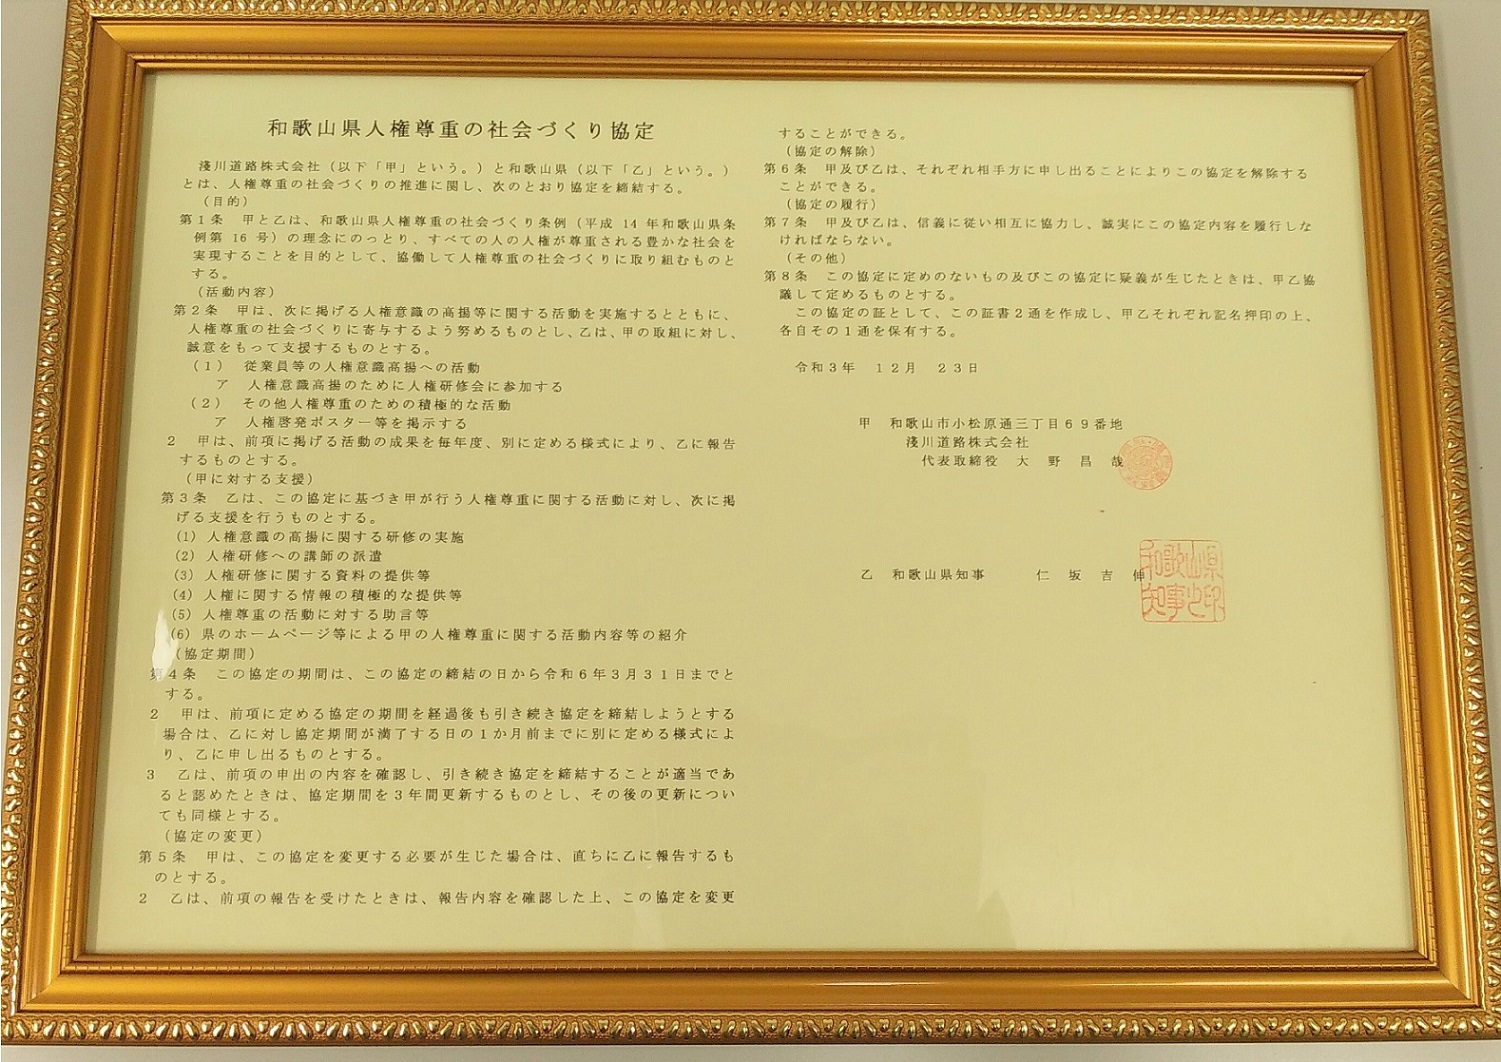 和歌山県人権尊重の社会づくり協定
淺川道路株式会社(以下「甲」という。)と和歌山県(以下「乙」という。)
とは、人権尊重の社会づくりの推進に関し、次のとおり協定を締結する。
(目的)
第1条　甲と乙は、和歌山県人権尊重の社会づくり条例(平成 14 年和歌山県条
例第 16 号)の理念にのっとり、すべての人の人権が尊重される豊かな社会を
実現することを目的として、協働して人権尊重の社会づくりに取り組むものと
する。
(活動内容)
第2条　甲は、次に掲げる人権意識の高揚等に関する活動を実施するとともに、
人権尊重の社会づくりに寄与するよう努めるものとし、乙は、甲の取組に対し、
誠意をもって支援するものとする。
(1)　従業員等の人権意識高揚への活動
ア　人権意識高揚のために人権研修会に参加する
(2)　その他人権尊重のための積極的な活動
ア　人権啓発ポスター等を掲示する
2　甲は、前項に掲げる活動の成果を毎年度、別に定める様式により、乙に報告
するものとする。
(甲に対する支援)
第3条　乙は、この協定に基づき甲が行う人権尊重に関する活動に対し、次に掲
げる支援を行うものとする。
(1) 人権意識の高揚に関する研修の実施
(2) 人権研修への講師の派遣
(3) 人権研修に関する資料の提供等
(4) 人権に関する情報の積極的な提供等
(5) 人権尊重の活動に対する助言等
(6) 県のホームページ等による甲の人権尊重に関する活動内容等の紹介
(協定期間)
第4条　この協定の期間は、この協定の締結の日から令和6年3月31日までと
する。
2　甲は、前項に定める協定の期間を経過後も引き続き協定を締結しようとする
場合は、乙に対し協定期間が満了する日の1か月前までに別に定める様式によ
り、乙に申し出るものとする。
3　乙は、前項の申出の内容を確認し、引き続き協定を締結することが適当であ
ると認めたときは、協定期間を3年間更新するものとし、その後の更新につい
ても同様とする。
(協定の変更)
第5条　甲は、この協定を変更する必要が生じた場合は、直ちに乙に報告するも
のとする。
2　乙は、前項の報告を受けたときは、報告内容を確認した上、この協定を変更
することができる。
(協定の解除)
第6条　甲及び乙は、それぞれ相手方に申し出ることによりこの協定を解除する
ことができる。
(協定の履行)
第7条　甲及び乙は、信義に従い相互に協力し、誠実にこの協定内容を履行しな
ければならない。
(その他)
第8条　この協定に定めのないもの及びこの協定に疑義が生じたときは、甲乙協
議して定めるものとする。
この協定の証として、この証書2通を作成し、甲乙それぞれ記名押印の上、
各自その1通を保有する。
令和3年　12月　23日
甲　和歌山市小松原通三丁目69番地
淺川道路株式会社
代表取締役　大　野　昌　哉
乙　和歌山県知事　仁　坂　吉　伸
和歌山県知事之印